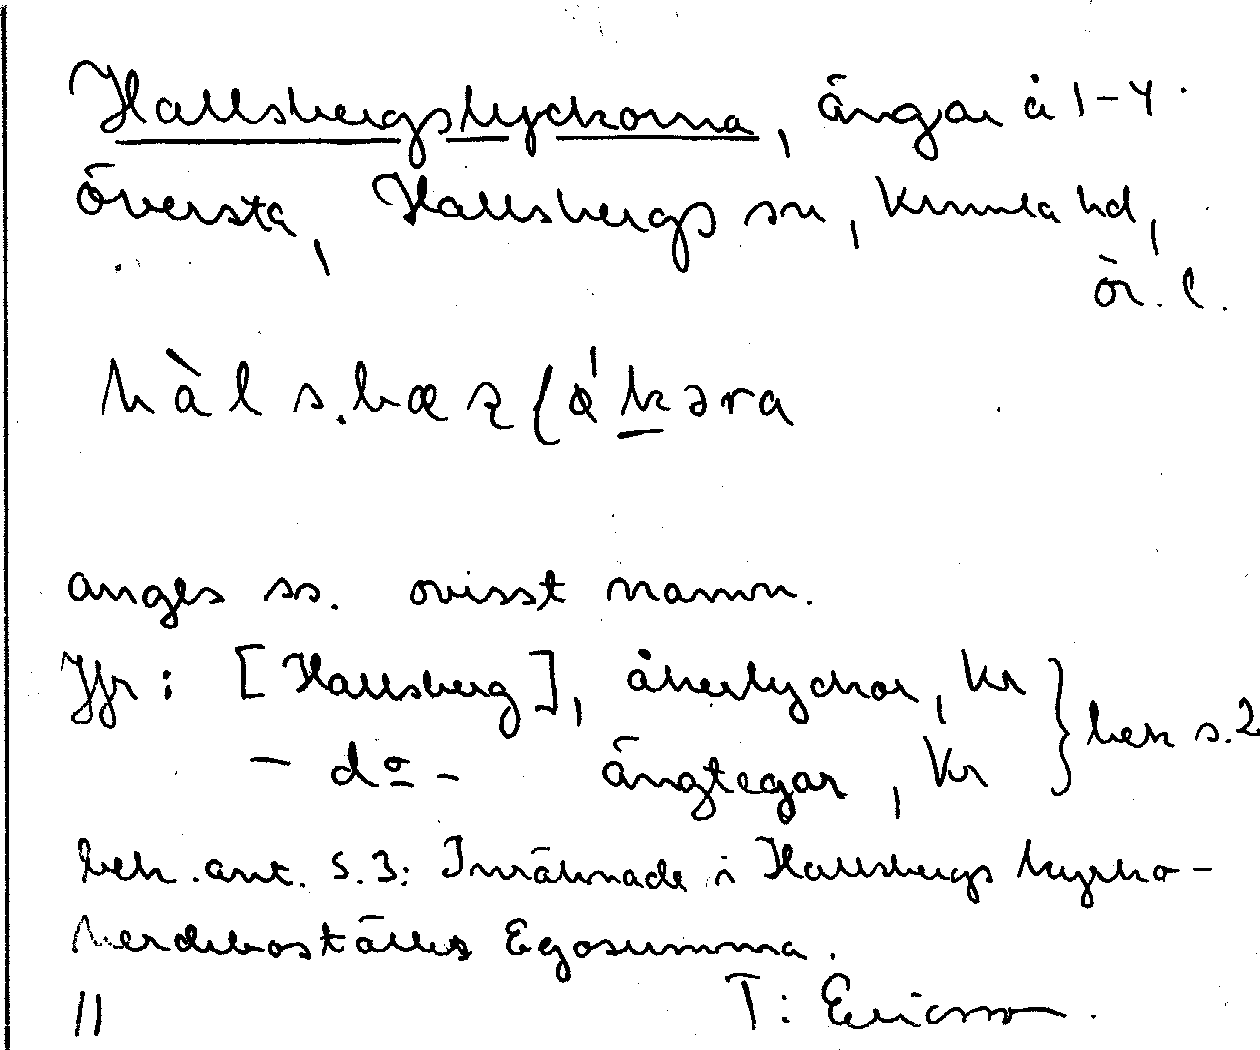 Hallsbergslyckorna, ängar å 1-4
översta, Hallsbergs sn, Kumla hd,
ör. l.
anges ss. ovisst namn.
Jfr: [Hallsberg], åkerlyckor, kr
- do - ängtegar, kr } besk s.2
besk. ant. s.3: Inräknade i Hallsbergs kyrko-
herdeboställes Egosumma.
T: Ericson.